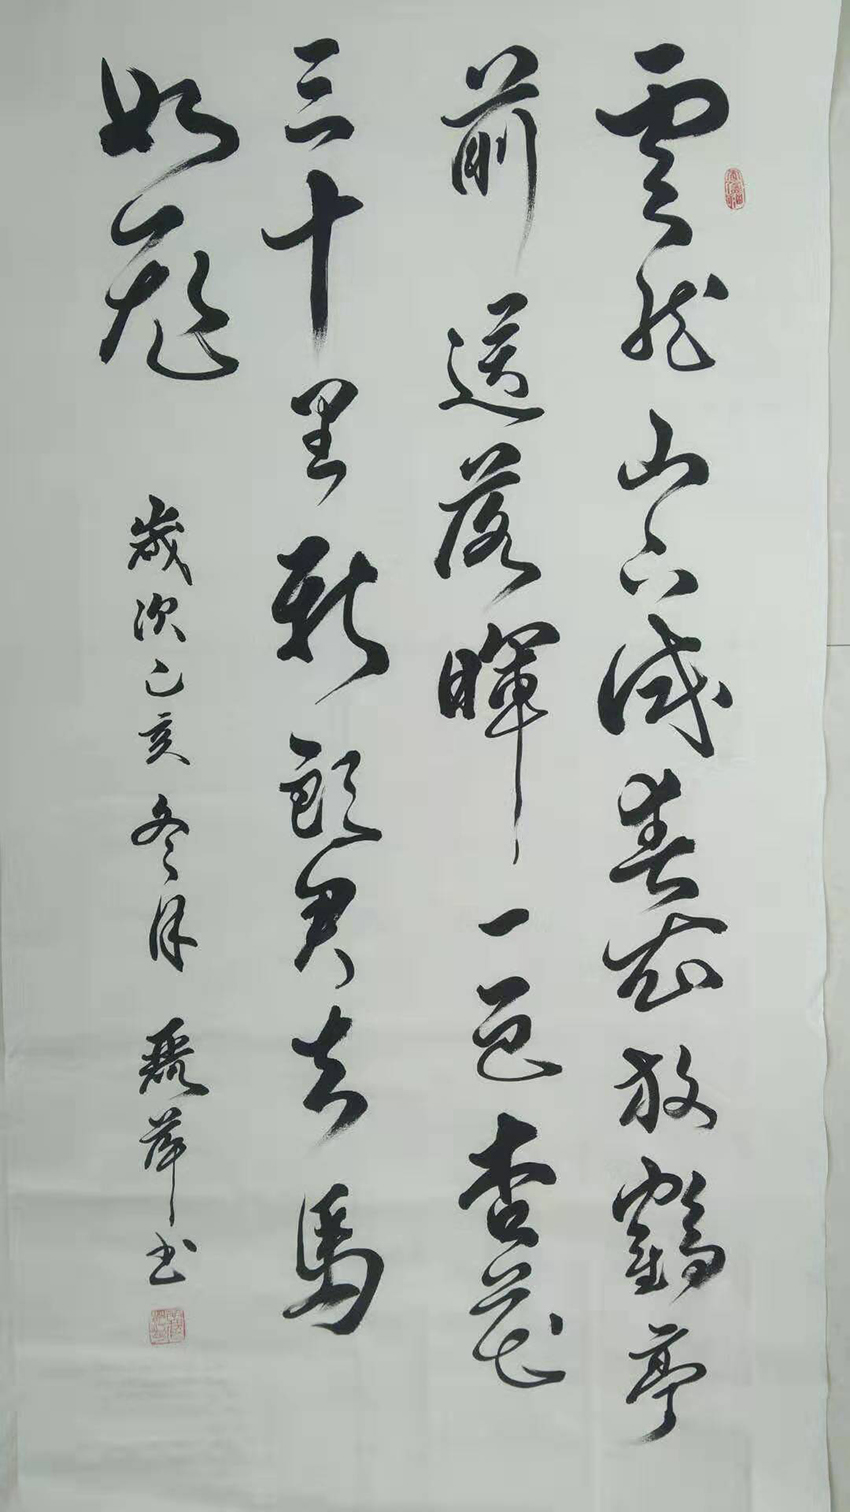 雲龍山下試春衣放鶴亭
前送落暉一色杏花
三十里新郎君去馬
如飛
歲次己亥冬月 麗萍书